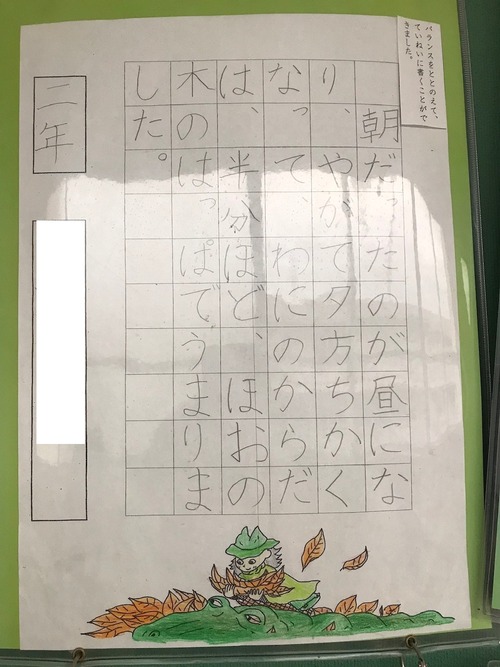 バランスをととのえて、
ていねいに書くことがで
きました。
　朝だったのが昼にな
り　やがて夕方ちかく
なって、わにのからだ
は、半分ほど、ほおの
木のはっぱでうまりま
した。
二年